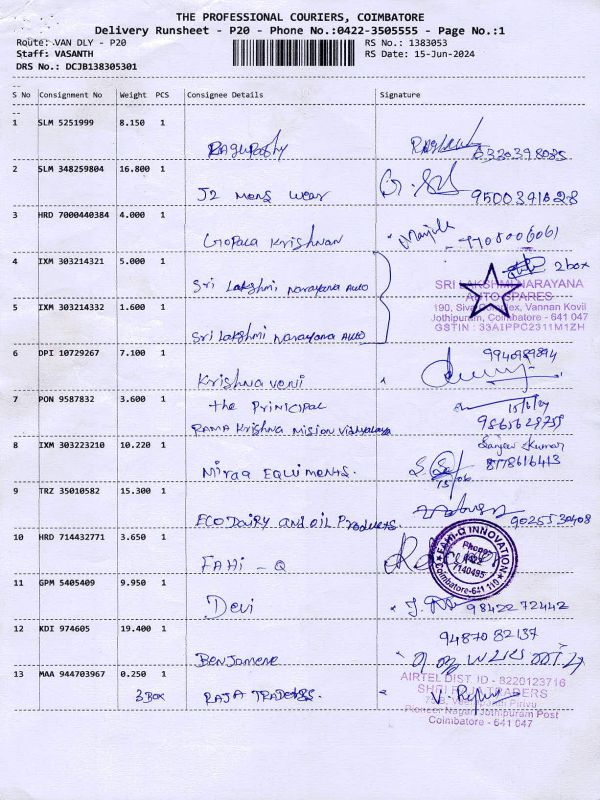 THE PROFESSIONAL COURIERS, COIMBATORE
Delivery Runsheet - P20 - Phone No.:0422-3505555 - Page No.:1
Route: VAN DLY - P20
RS No.: 1383053
Staff: VASANTH
RS Date: 15-Jun-2024
DRS No.: DCJB138305301
S No Consignment No Weight PCS Consignee Details Signature
1 SLM 5251999 8.150 1
RAGUPATHY
2 SLM 348259804 16.800 1
J2 Mens wear 9500391028
3 HRD 7000440384 4.000 1
Gopala Krishnan Manjula
4 IXM 303214321 5.000 1
Sri Lakshmi Narayana Auto 2 box
SRI LAKSHMI NARAYANA
AUTO SPARES
5 IXM 303214332 1.600 1
190, Siva Complex, Vannan Kovil
Jothipuram, Coimbatore - 641 047
GSTIN : 33AIPPC2311M1ZH
Sri Lakshmi Narayana Auto
6 DPI 10729267 7.100 1
9940989894
Krishnaveni
7 PON 9587832 3.600 1
the Prinicipal 15/6/24
Rama Krishna Mision Vidhyalaya 9865629759
8 IXM 303223210 10.220 1
Sanjeev Kumar
8778616413
Miraq EQUIMENTS. 15/06
9 TRZ 35010582 15.300 1
ECODairy and oil Products. 9025530408
10 HRD 714432771 3.650 1
FAHI-Q INNOVATION
Phone:
0422
7140495
Coimbatore-641 110
FAHI - Q
11 GPM 5405409 9.950 1
Devi 9842272442
12 KDI 974605 19.400 1
9487082137
Benjamene
13 MAA 944703967 0.250 1
AIRTEL DIST. ID - 8220123716
3 Box RAJA TRADERS.
SHRI RAJA TRADERS
Pioneer Nagar, Jothipuram Post
Coimbatore - 641 047